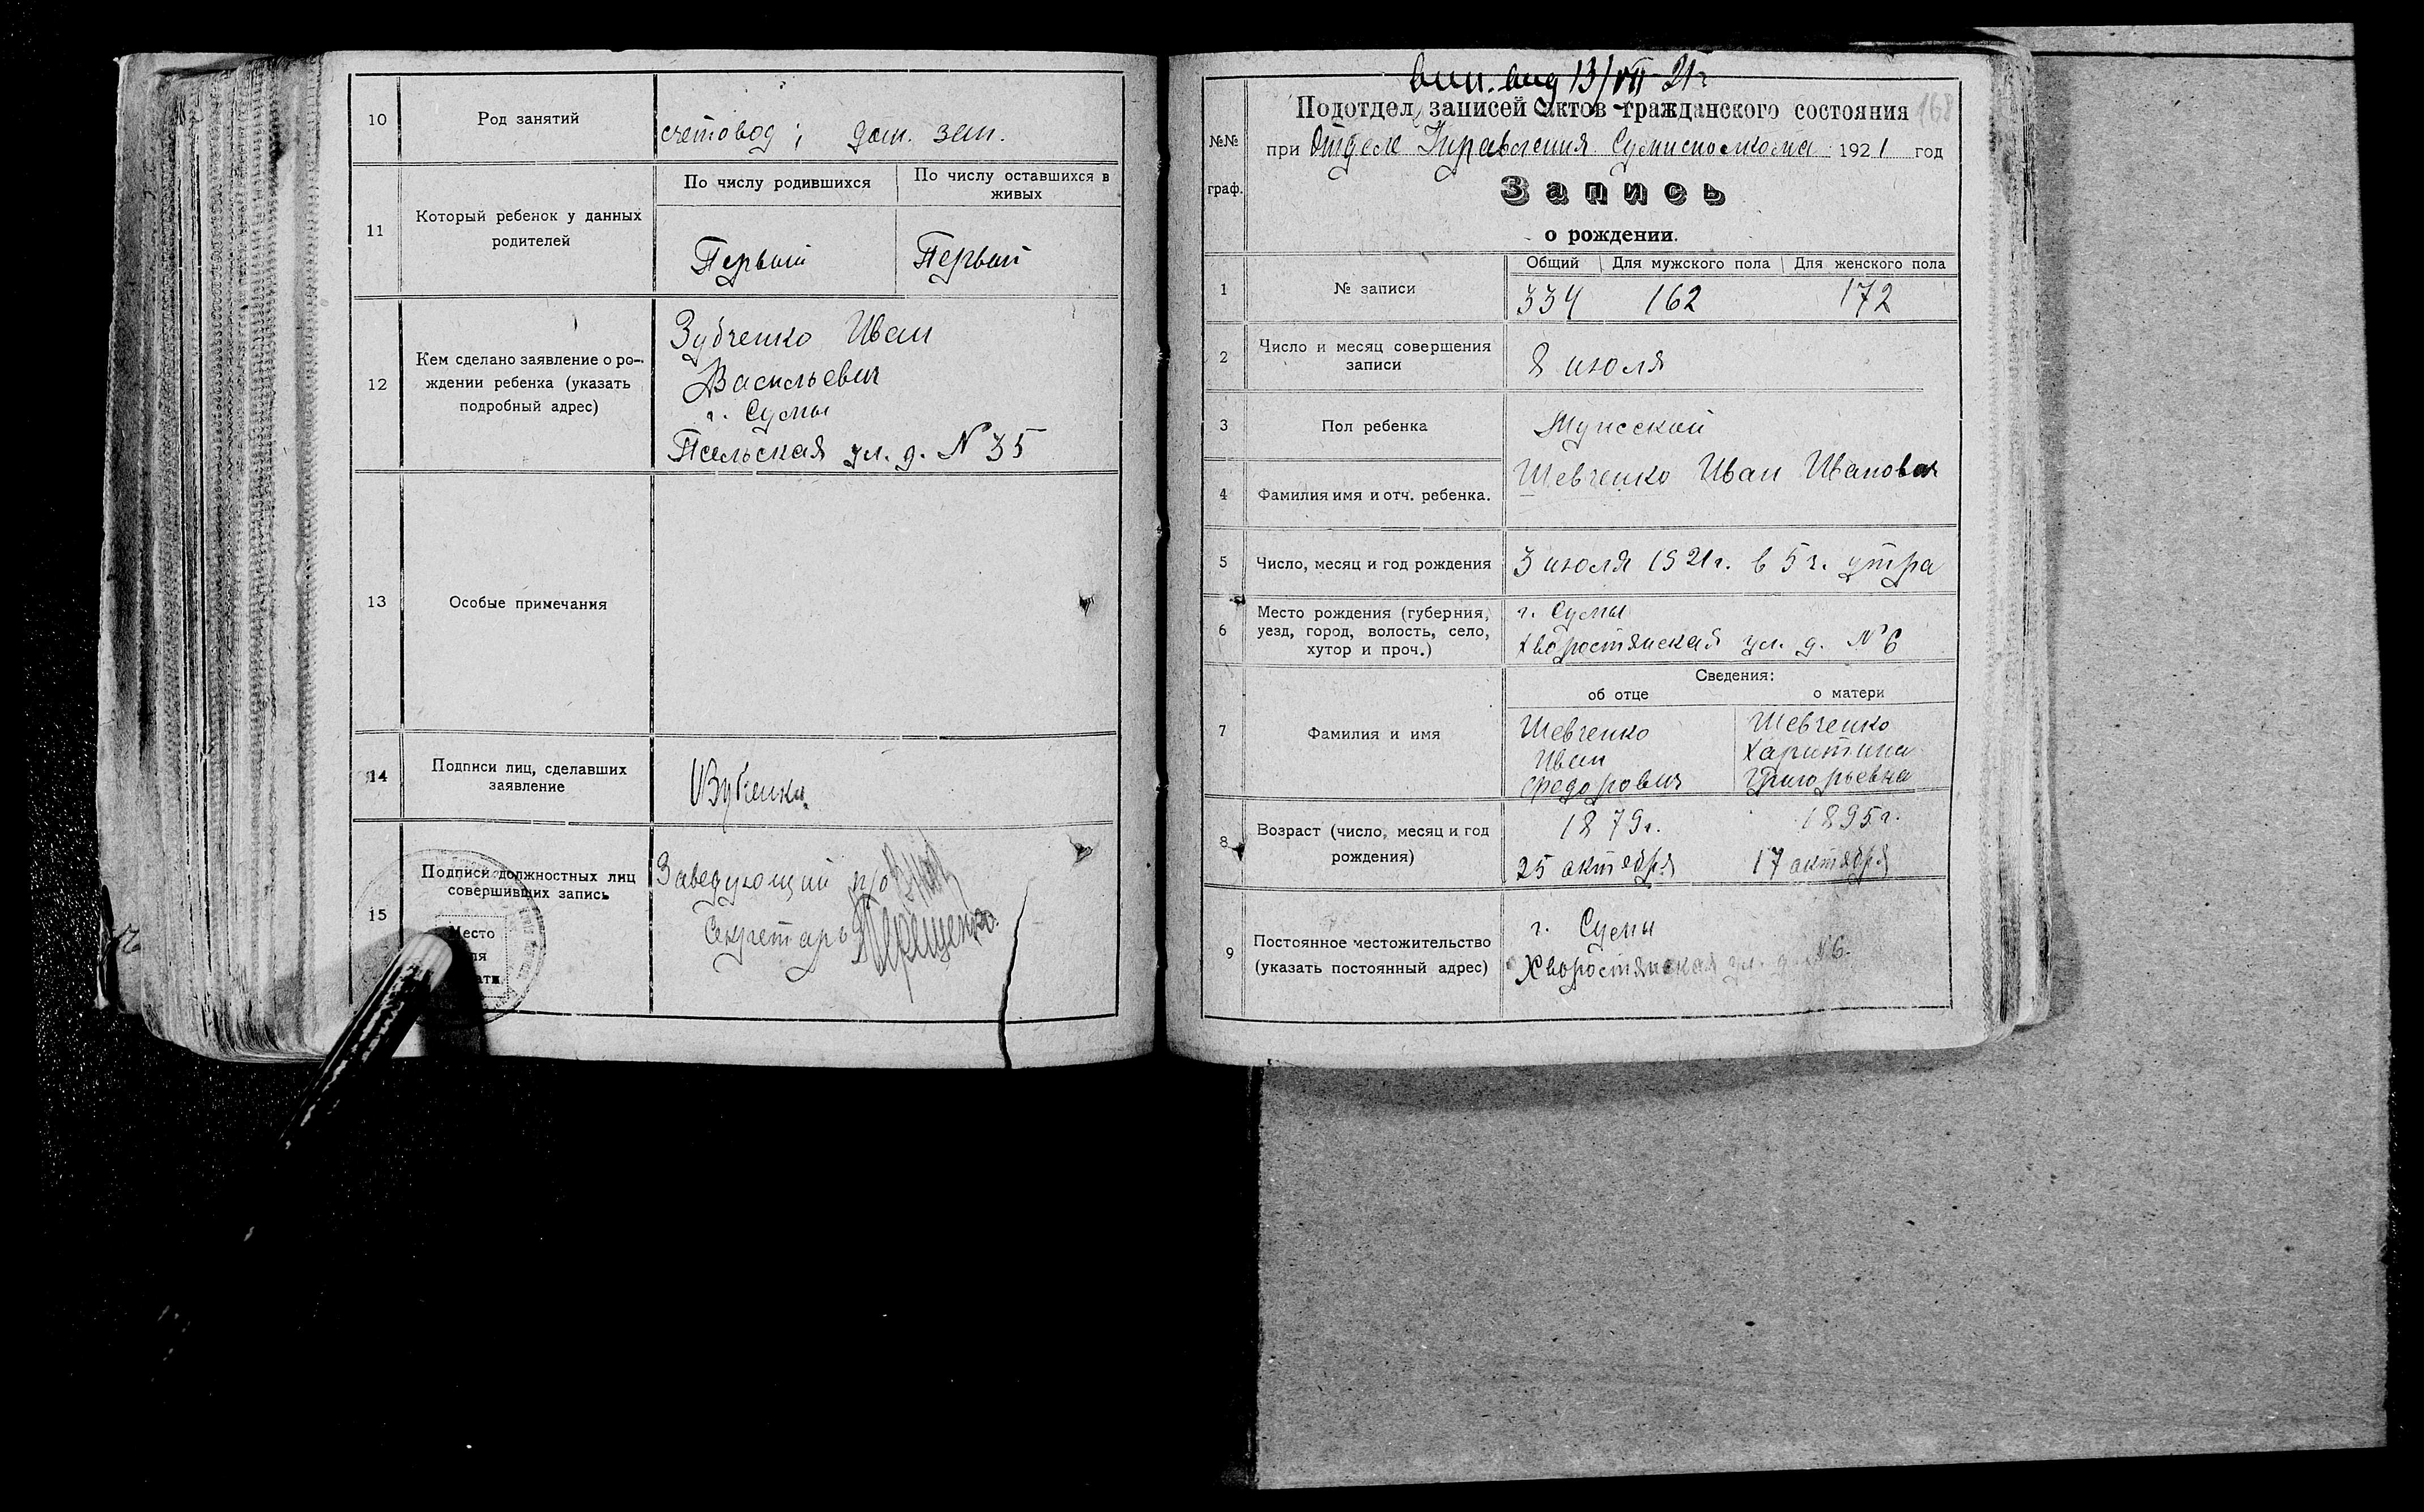 10
Род занятий
счетовод; дом. зан.
11
Который ребенок у данных
родителей
По числу родившихся
По числу оставшихся в
живых
Первый
Первый
12
Кем сделано заявление о ро-
ждении ребенка (указать
подробный адрес)
Зубченко Иван
Васильевич
г. Сумы
Псельская ул. д. N 35
13
Особые примечания
14
Подписи лиц, сделавших
заявление
ИЗубченко
15
Подписи должностных лиц
совершивших запись
Место
Заведующий п/о
Секретарь Терещенко
вып. вид 13/VII-21г
168
Подотдел записей актов гражданского состояния
№№
граф.
при Отделе Управления Сумисполкома 1921 год
Запись
о рождении.
1
№ записи
Общий
Для мужского пола
Для женского пола
334
162
172
2
Число и месяц совершения
записи
8 июля
3
Пол ребенка
Мужской
4
Фамилия имя и отч. ребенка.
Шевченко Иван Иванович
5
Число, месяц и год рождения
3 июля 1921 г. в 5 ч. утра
6
Место рождения (губерния,
уезд, город, волость, село,
хутор и проч.)
г. Сумы
Хворостянская ул. д. N 6
7
Фамилия и имя
Сведения:
об отце
о матери
Шевченко
Иван
Федорович
Шевченко
Харитина
Григорьевна
8
Возраст (число, месяц и год
рождения)
1879 г.
25 октября
1895 г.
17 октября
9
Постоянное местожительство
(указать постоянный адрес)
г. Сумы
Хворостянская ул. д. N 6.